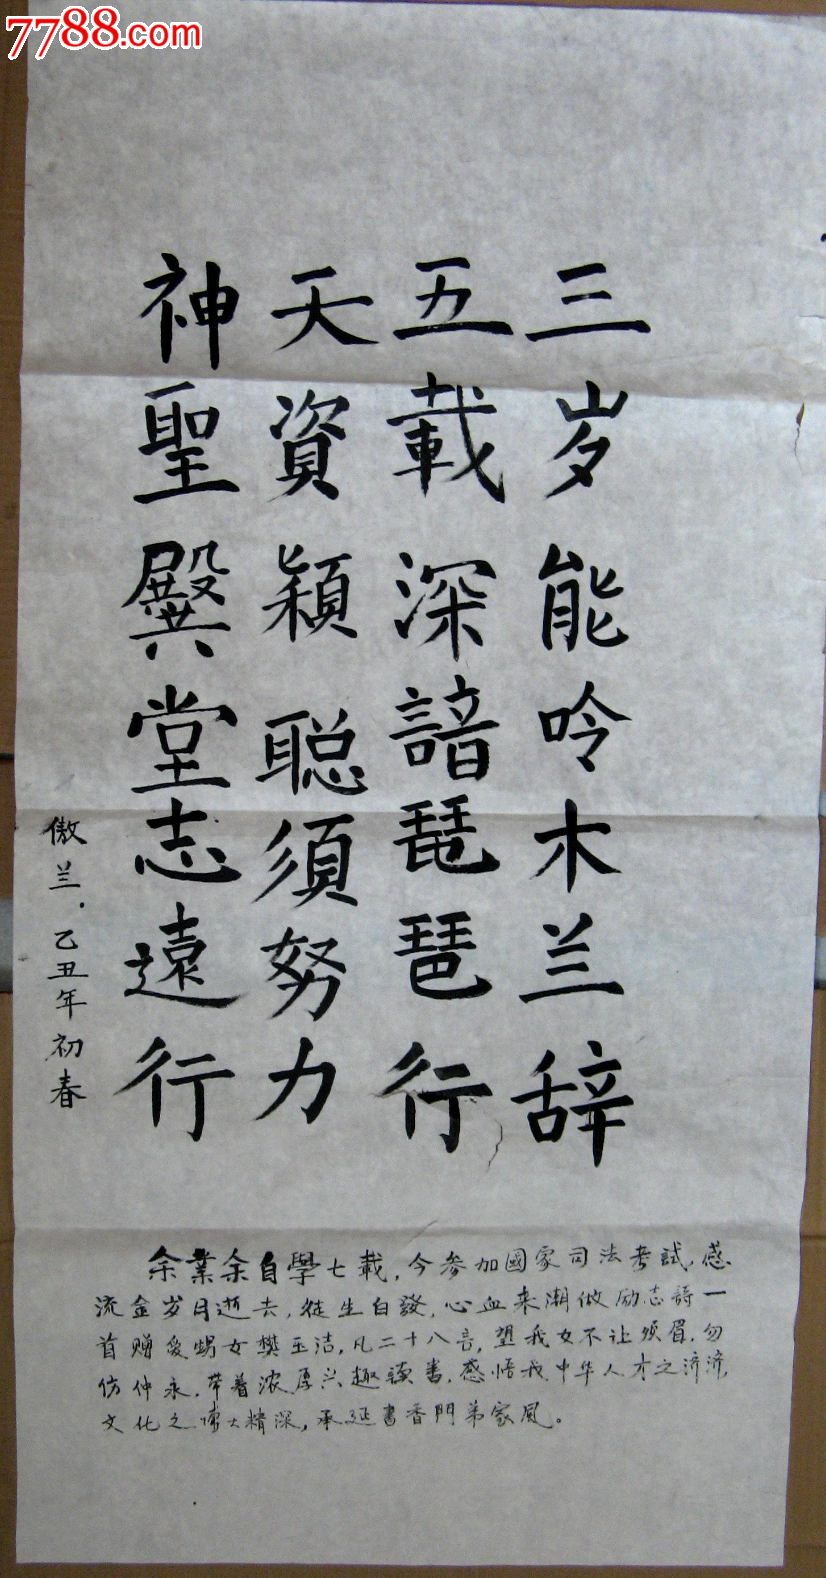 7788.com
三岁能吟木兰辞
五載深諳琵琶行
天資穎聪須努力
神聖殿堂志遠行
傲兰．乙丑年初春
余業余自學七載，今参加國家司法考試，感
流金岁月逝去，徒生白發，心血来潮做励志詩一
首赠爱婿女樊玉洁，凡二十八言，望我女不让须眉，勿
仿仲永，带着浓厚兴趣读書，感悟我中华人才之济济，
文化之博大精深，承延書香門弟家风。